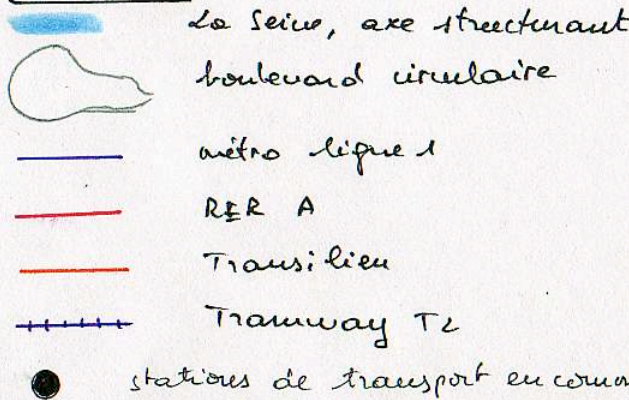 La Seine, axe structurant
boulevard circulaire
métro ligne 1
RER A
Transilien
Tramway T2
stations de transport en commun